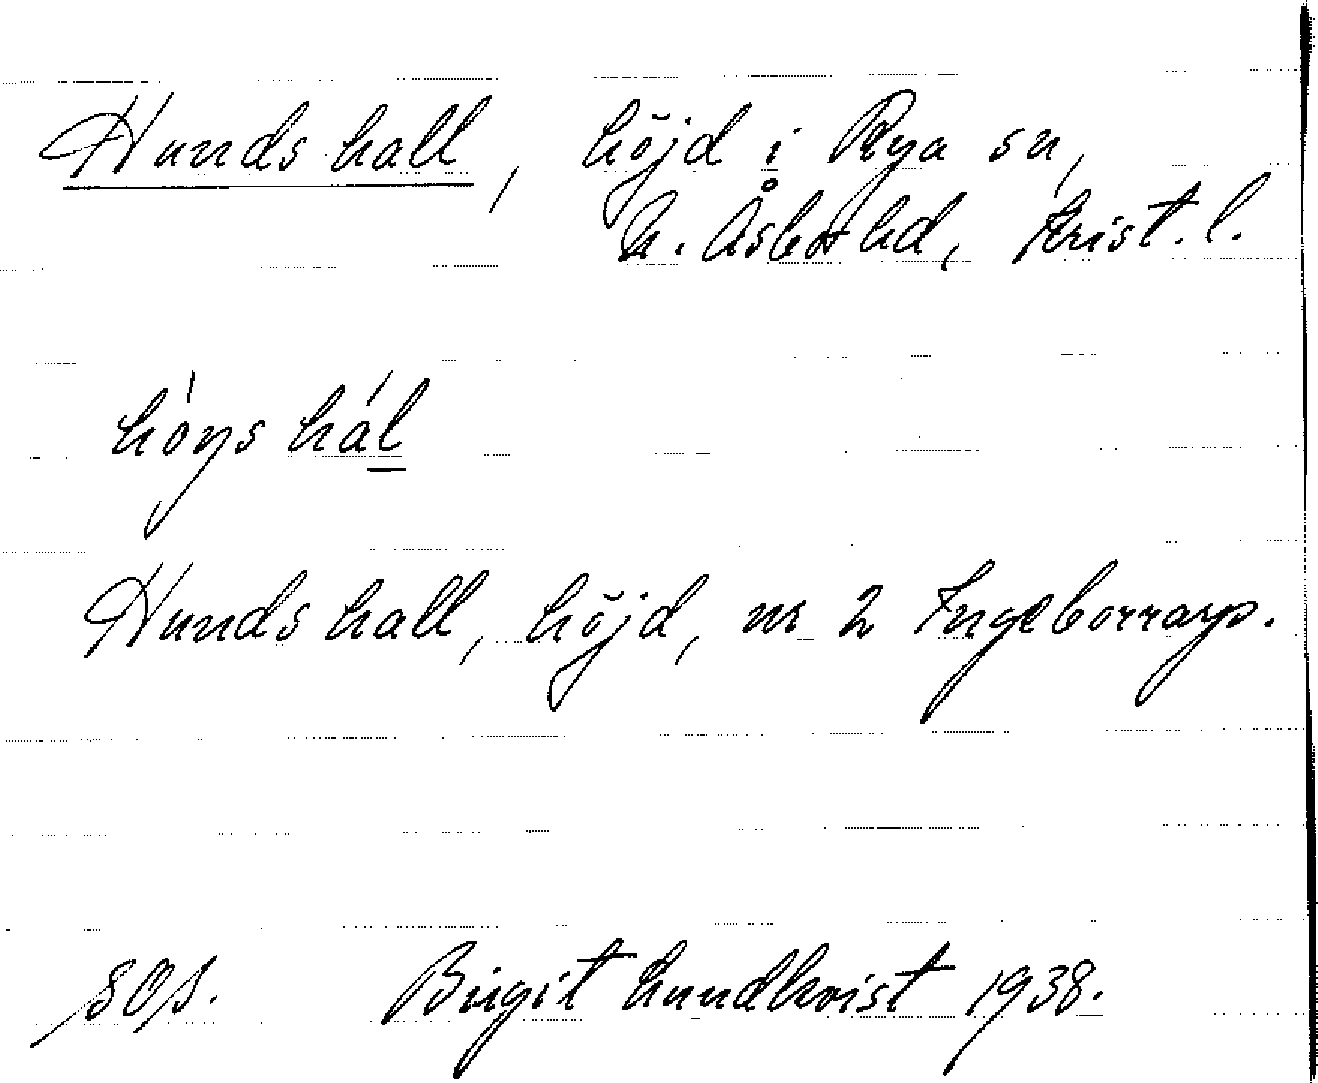 Hundshall, höjd i Rya sn,
N. Åsbo hd, Krist. l.
hóŋs hál
Hundshall, höjd, nr 2 Ingeborrarp.
SOS. Birgit Lundkvist 1938.